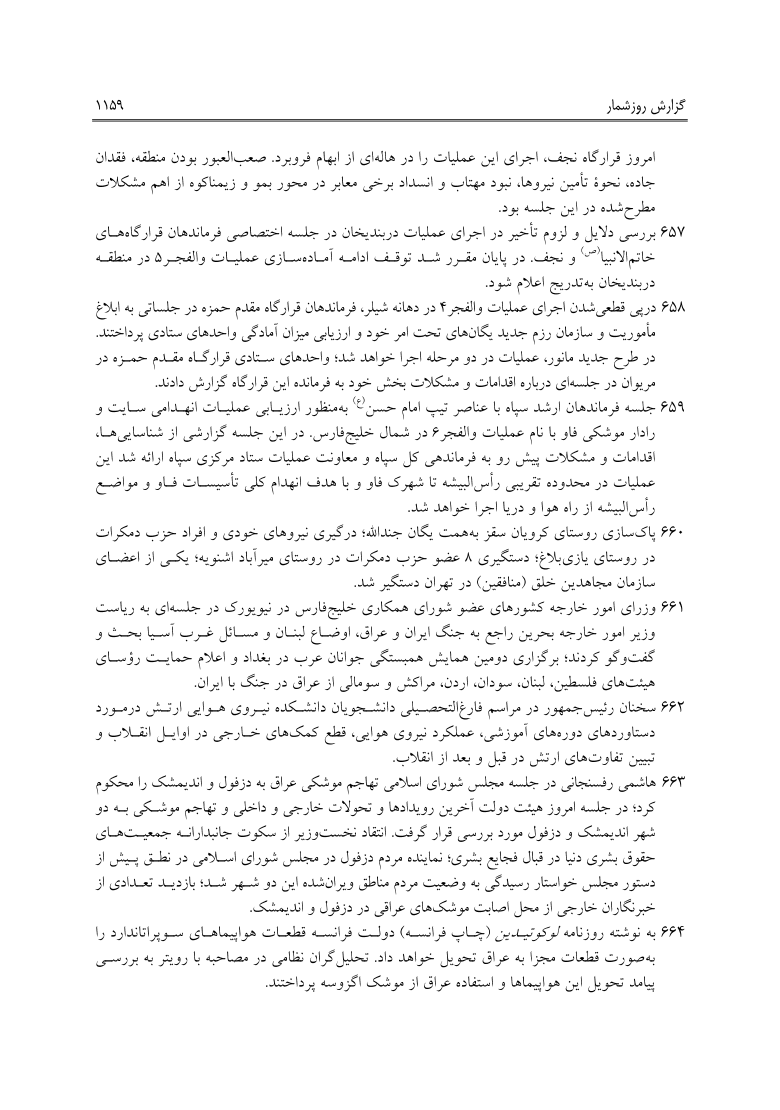 گزارش روزشمار ۱۱۵۹
امروز قرارگاه نجف، اجرای این عملیات را در هاله‌ای از ابهام فروبرد. صعب‌العبور بودن منطقه، فقدان
جاده، نحوۀ تأمین نیروها، نبود مهتاب و انسداد برخی معابر در محور بمو و زیمناکوه از اهم مشکلات
مطرح‌شده در این جلسه بود.
۶۵۷ بررسی دلایل و لزوم تأخیر در اجرای عملیات دربندیخان در جلسه اختصاصی فرماندهان قرارگاه‌های
خاتم‌الانبیا(ص) و نجف. در پایان مقرر شد توقف ادامه آماده‌سازی عملیات والفجر۵ در منطقه
دربندیخان به‌تدریج اعلام شود.
۶۵۸ درپی قطعی‌شدن اجرای عملیات والفجر۴ در دهانه شیلر، فرماندهان قرارگاه مقدم حمزه در جلساتی به ابلاغ
مأموریت و سازمان رزم جدید یگان‌های تحت امر خود و ارزیابی میزان آمادگی واحدهای ستادی پرداختند.
در طرح جدید مانور، عملیات در دو مرحله اجرا خواهد شد؛ واحدهای ستادی قرارگاه مقدم حمزه در
مریوان در جلسه‌ای درباره اقدامات و مشکلات بخش خود به فرمانده این قرارگاه گزارش دادند.
۶۵۹ جلسه فرماندهان ارشد سپاه با عناصر تیپ امام حسن(ع) به‌منظور ارزیابی عملیات انهدامی سایت و
رادار موشکی فاو با نام عملیات والفجر۶ در شمال خلیج‌فارس. در این جلسه گزارشی از شناسایی‌ها،
اقدامات و مشکلات پیش رو به فرماندهی کل سپاه و معاونت عملیات ستاد مرکزی سپاه ارائه شد این
عملیات در محدوده تقریبی رأس‌البیشه تا شهرک فاو و با هدف انهدام کلی تأسیسات فاو و مواضع
رأس‌البیشه از راه هوا و دریا اجرا خواهد شد.
۶۶۰ پاک‌سازی روستای کرویان سقز به‌همت یگان جندالله؛ درگیری نیروهای خودی و افراد حزب دمکرات
در روستای یازی‌بلاغ؛ دستگیری ۸ عضو حزب دمکرات در روستای میرآباد اشنویه؛ یکی از اعضای
سازمان مجاهدین خلق (منافقین) در تهران دستگیر شد.
۶۶۱ وزرای امور خارجه کشورهای عضو شورای همکاری خلیج‌فارس در نیویورک در جلسه‌ای به ریاست
وزیر امور خارجه بحرین راجع به جنگ ایران و عراق، اوضاع لبنان و مسائل غرب آسیا بحث و
گفت‌وگو کردند؛ برگزاری دومین همایش همبستگی جوانان عرب در بغداد و اعلام حمایت رؤسای
هیئت‌های فلسطین، لبنان، سودان، اردن، مراکش و سومالی از عراق در جنگ با ایران.
۶۶۲ سخنان رئیس‌جمهور در مراسم فارغ‌التحصیلی دانشجویان دانشکده نیروی هوایی ارتش درمورد
دستاوردهای دوره‌های آموزشی، عملکرد نیروی هوایی، قطع کمک‌های خارجی در اوایل انقلاب و
تبیین تفاوت‌های ارتش در قبل و بعد از انقلاب.
۶۶۳ هاشمی رفسنجانی در جلسه مجلس شورای اسلامی تهاجم موشکی عراق به دزفول و اندیمشک را محکوم
کرد؛ در جلسه امروز هیئت دولت آخرین رویدادها و تحولات خارجی و داخلی و تهاجم موشکی به دو
شهر اندیمشک و دزفول مورد بررسی قرار گرفت. انتقاد نخست‌وزیر از سکوت جانبدارانه جمعیت‌های
حقوق بشری دنیا در قبال فجایع بشری؛ نماینده مردم دزفول در مجلس شورای اسلامی در نطق پیش از
دستور مجلس خواستار رسیدگی به وضعیت مردم مناطق ویران‌شده این دو شهر شد؛ بازدید تعدادی از
خبرنگاران خارجی از محل اصابت موشک‌های عراقی در دزفول و اندیمشک.
۶۶۴ به نوشته روزنامه لوکوتیدین (چاپ فرانسه) دولت فرانسه قطعات هواپیماهای سوپراتاندارد را
به‌صورت قطعات مجزا به عراق تحویل خواهد داد. تحلیل‌گران نظامی در مصاحبه با رویتر به بررسی
پیامد تحویل این هواپیماها و استفاده عراق از موشک اگزوسه پرداختند.